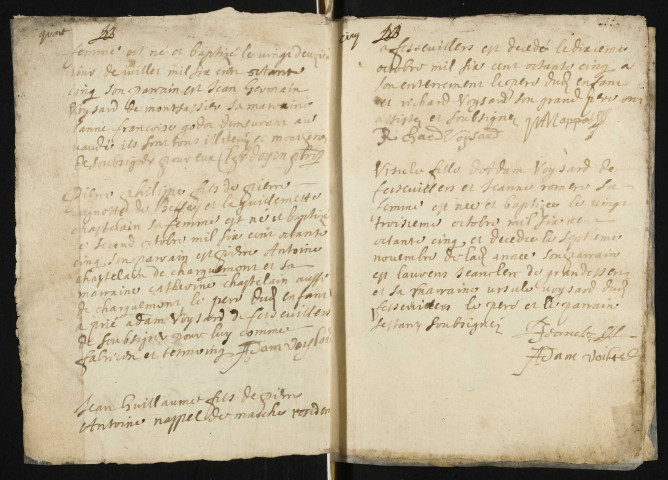 femme est né et baptizé le vingt deuzie
jour de juillet mil six cent octante
cinq son parrain est Jean Germain
Voysard de montsassier sa marraine
Janne francoise godot demeurant au
vaudé ils sont tous illiterez et mont prié
de soubsigner pour eux
Pierre philippe fils de pierre
de Bessey et la guillemette
chastelain sa femme est né et baptizé
le second octobre mil six cent octante
cinq son parrain est pierre Antoine
chastelain de charquemont et sa
marraine catherine chastelain aussi
de charquemont le pere dud enfant
a prié adam Voysard de fessevillers
de soubsigner pour luy comme
fabricien et tesmoing Adam voysard
Jean Guillaume fils de pierre
Antoine nappel de maiche residen
cinq
a fessevillers est decedé le dixieme
octobre mil six cent octante cinq a
son enterrement le pere dud enfant
et richard Voysard son grand pere ont
assisté et soubsigné
Richard Voysard
Ursule fille dadam Voysard de
fessevillers et Jeanne romere sa
femme est née et baptizee le vingt
troisieme octobre mil six cent
octante cinq et decedee le septieme
novembre de lad annee son parrain
est laurens Jeanclerc de
et sa marraine ursule voysard dud
fessevillers le pere et le parrain
se sont soubsignez
Adam voisard